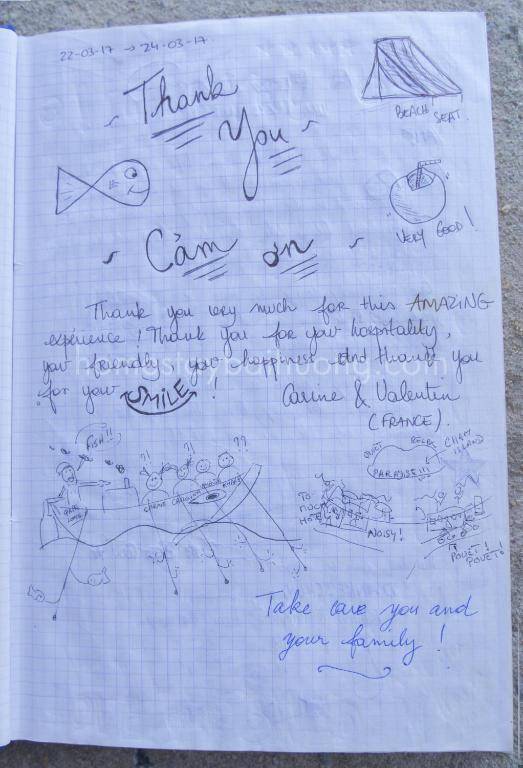 22-03-17 → 24-03-17
Thank
You
BEACH SEAT.
VERY GOOD!
Cảm ơn
Thank you very much for this AMAZING
experience! Thank you for your hospitality,
your friendly, your happiness and thank you
for your SMILE!
Carine & Valentin
(FRANCE).
homestaybahuong.com
FISH!!
?!
?!
??
QUIET RELAX
CHAM ISLAND
PARADISE!!!
TO MUCH HOTEL
NOISY!
POUET! POUET!
Take care you and
your family!